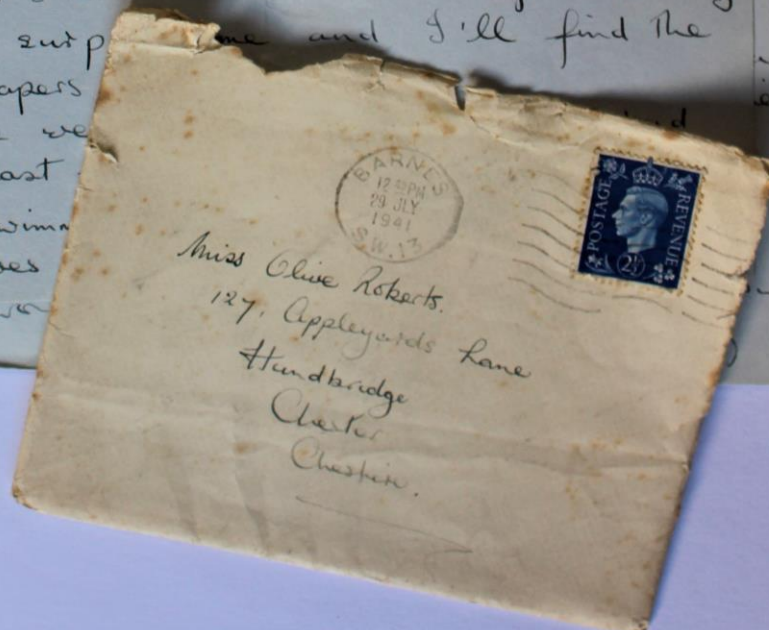 surp me and I'll find the
apers
we
ast
wimm
BARNES
12 PM
29 JLY
1941
S.W.13
POSTAGE
REVENUE
2½
Miss Olive Roberts.
127, Appleyards Lane
Handbridge
Chester
Cheshire.